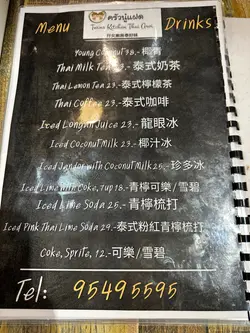 ครัวนู๋แฝด
Twins Kitchen Thai Ocean
Menu Drinks
Young Coconut 38.- 椰青
Thai Milk Tea 23.- 泰式奶茶
Thai Lemon Tea 23.- 泰式檸檬茶
Thai Coffee 23.- 泰式咖啡
Iced Longan Juice 23.- 龍眼冰
Iced Coconut Milk 23.- 椰汁冰
Iced Jandor with Coconut Milk 25.- 珍多冰
Iced Lime with Coke, 7up 18.- 青檸可樂/雪碧
Iced Lime Soda 25.- 青檸梳打
Iced Pink Thai Lime Soda 29.- 泰式粉紅青檸梳打
Coke, Sprite, 12.- 可樂/雪碧
Tel: 95495595